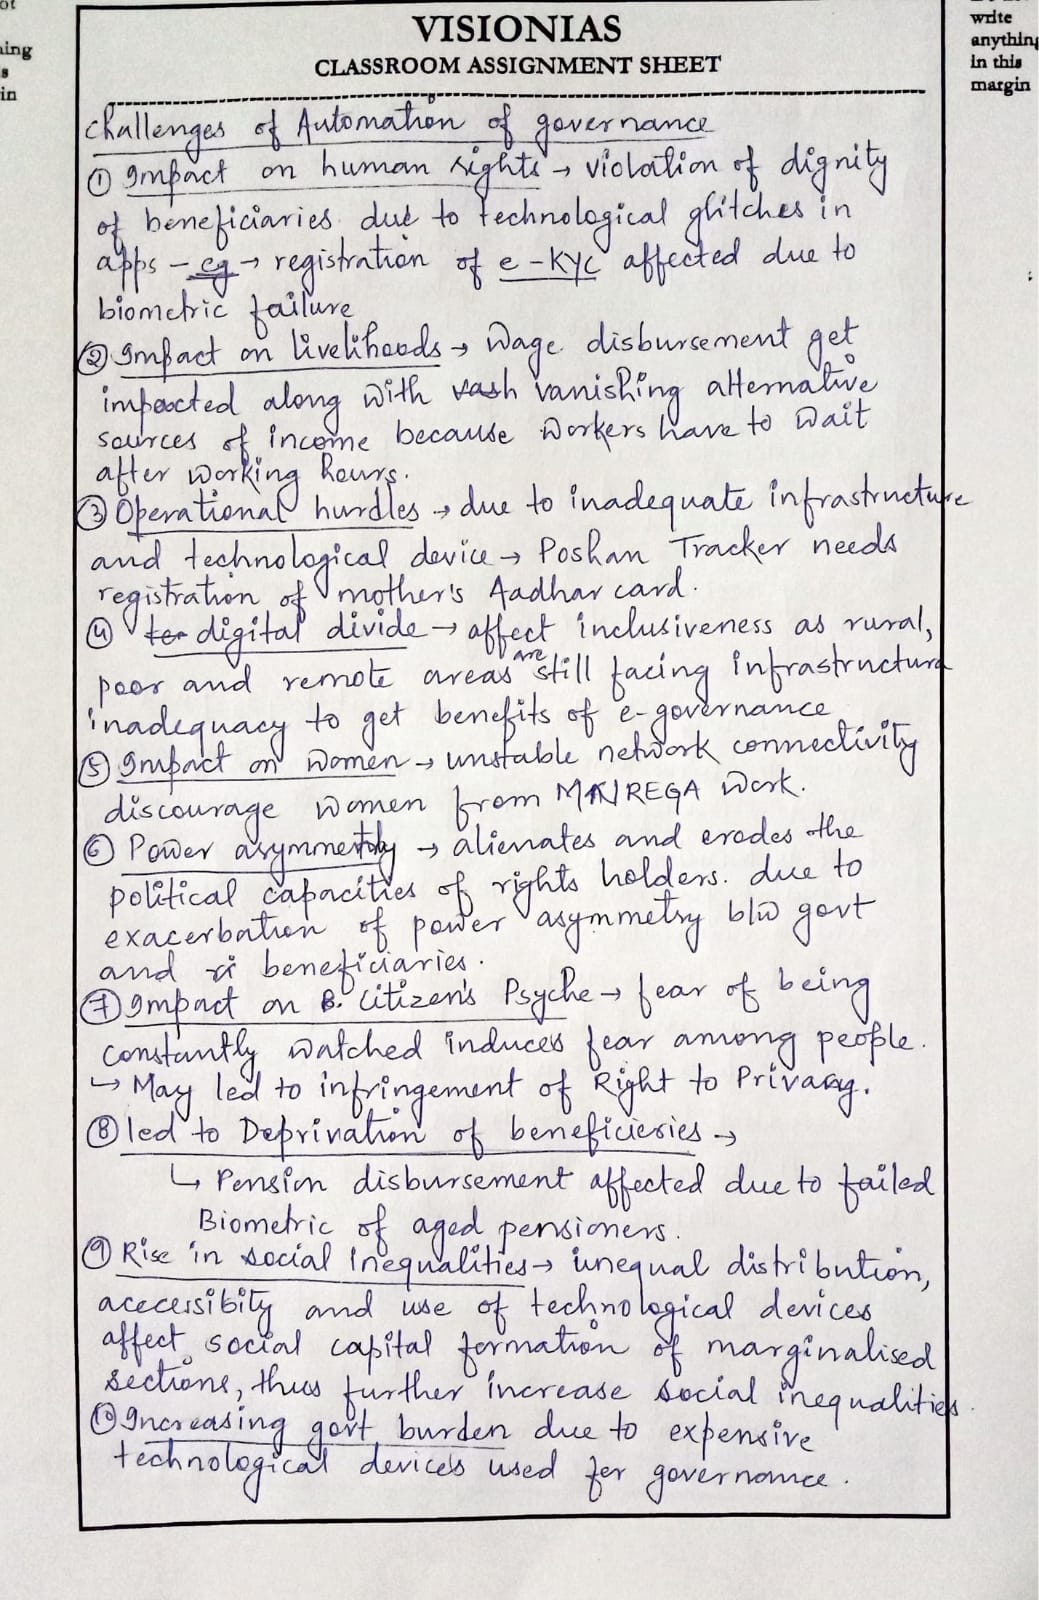 ot
ning
s
in
VISIONIAS
CLASSROOM ASSIGNMENT SHEET
write
anything
in this
margin
Challenges of Automation of governance
① Impact on human rights → violation of dignity
of beneficiaries due to technological glitches in
apps – eg → registration of e-KYC affected due to
biometric failure
② Impact on livelihoods → Wage disbursement get
impacted along with vash vanishing alternative
sources of income because workers have to wait
after working hours.
③ Operational hurdles → due to inadequate infrastructure
and technological device → Poshan Tracker needs
registration of mother's Aadhar card.
④ ter digital divide → affect inclusiveness as rural,
poor and remote areas are still facing infrastructure
inadequacy to get benefits of e-governance
⑤ Impact on women → unstable network connectivity
discourage women from MNREGA work.
⑥ Power asymmetry → alienates and erodes the
political capacities of rights holders. due to
exacerbation of power asymmetry b/w govt
and ri beneficiaries.
⑦ Impact on B. Citizen's Psyche → fear of being
constantly watched induces fear among people.
↳ May led to infringement of Right to Privacy.
⑧ led to Deprivation of beneficieries →
↳ Pension disbursement affected due to failed
Biometric of aged pensioners.
⑨ Rise in social Inequalities → unequal distribution,
acecessibity and use of technological devices
affect social capital formation of marginalised
sections, thus further increase social inequalities.
⑩ Increasing govt burden due to expensive
technological devices used for governance.